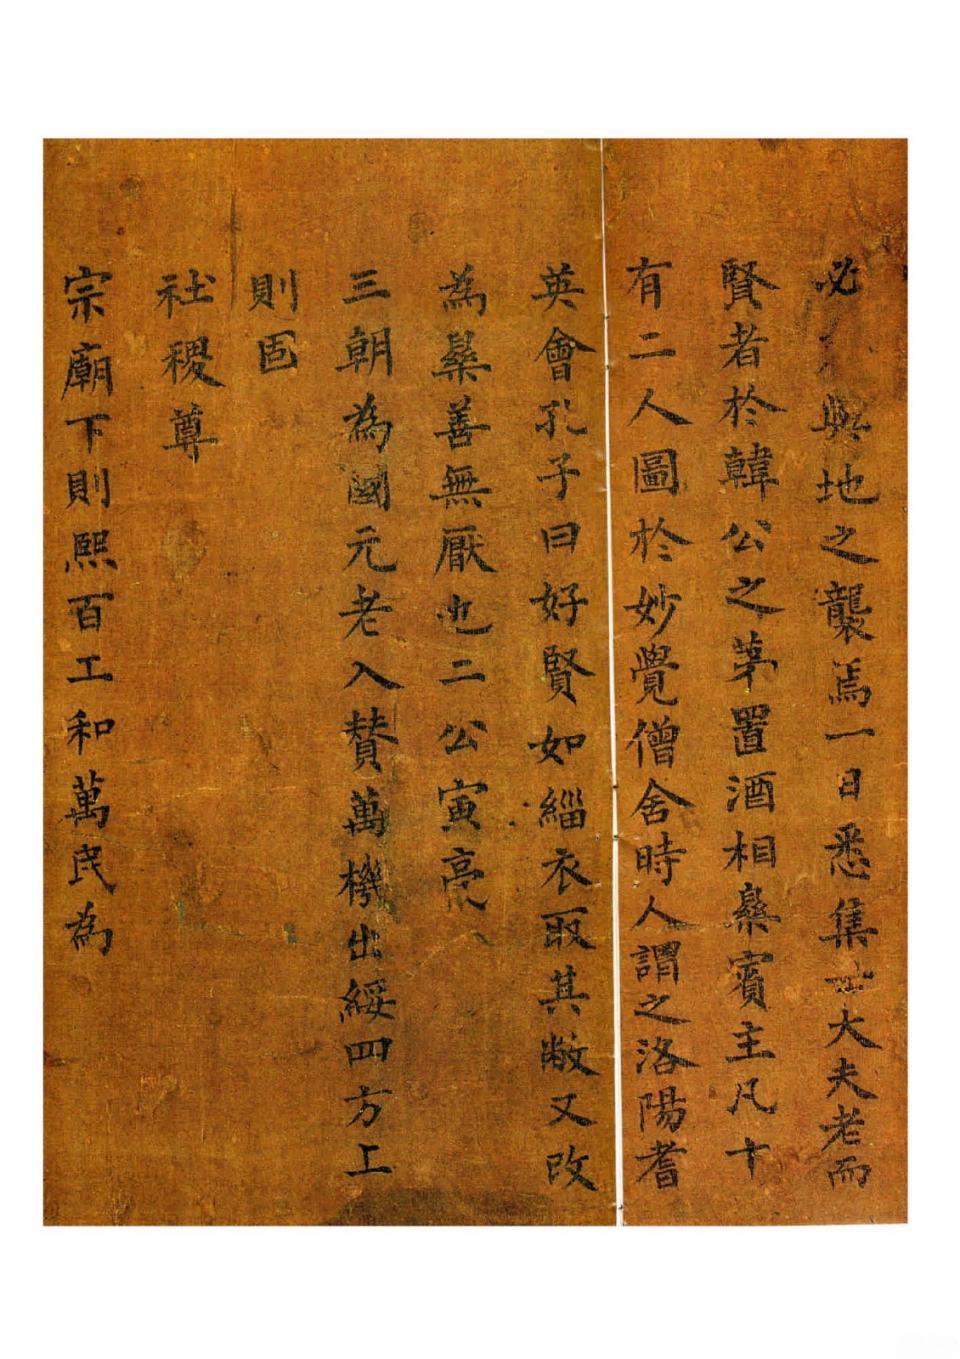 必與地之襲焉一日悉集士大夫老而
賢者於韓公之第置酒相樂賓主凡十
有二人圖於妙覺僧舍時人謂之洛陽耆
英會孔子曰好賢如緇衣取其敝又改
為樂善無厭也二公寅亮
三朝為國元老入贊萬機出綏四方上
則固
社稷尊
宗廟下則熙百工和萬民為